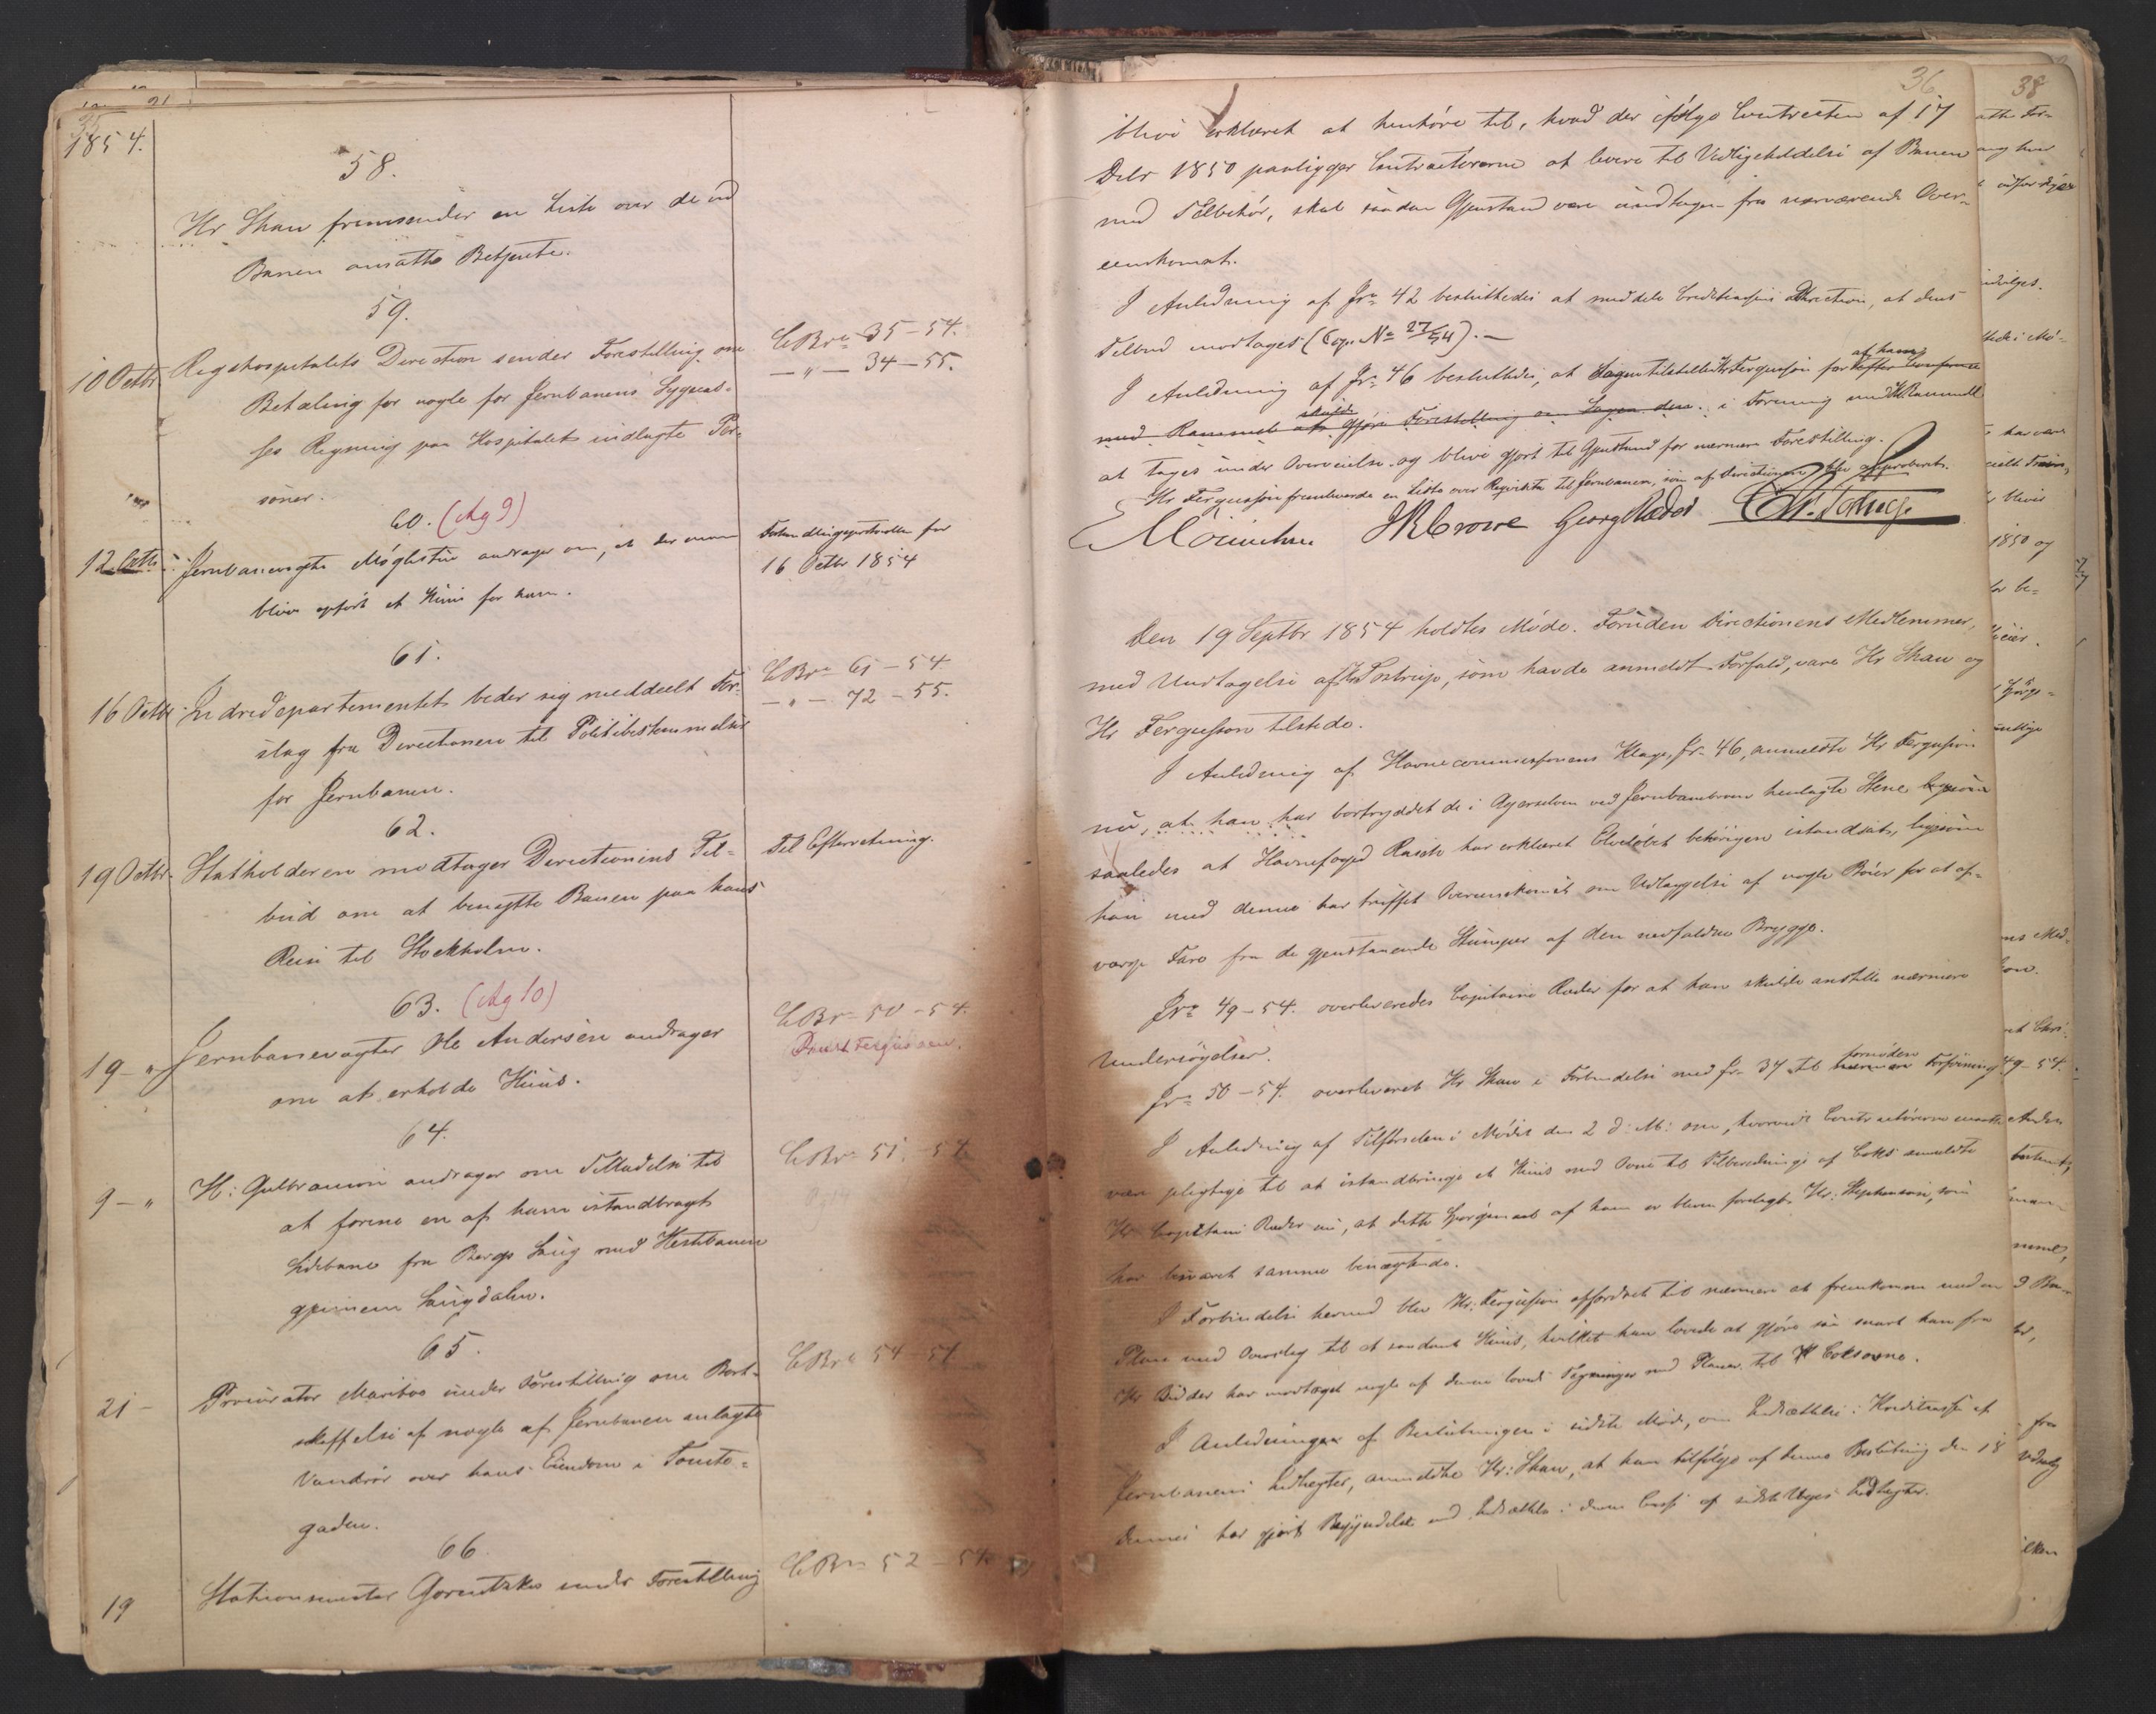 35
1854.
58.
Hr Skaw fremsender en Liste over de ved
Banen ansatte Betjente.
59.
10 Octbr. Rigshospitalets Direction sender Forestilling om
CBr 35-54.
Betaling for nogle for Jernbanens Sygecas-
—"— 34-55.
ses Regning paa Hospitalet indlagte Per-
soner.
60. (Ag 9)
12 Octb: Jernbanevogter Møglestue andrager om, at der maa
Forhandlingsprotocollen for
blive opført et Huus for ham.
16 Octbr 1854
61.
16 Octbr Indredepartementet beder sig meddeelt For-
CBr 61-54
slag fra Directionen til Politibestemmelser
—"— 72-55.
for Jernbanen.
62.
19 Octbr. Statholderen modtager Directionens Til-
Til Efterretning.
bud om at benytte Banen paa hans
Reise til Stockholm.
63. (Ag 10)
19-" Jernbanevogter Ole Andersen andrager
CBr 50-54.
om at erholde Huus.
64.
9-" H: Gulbranson andrager om Tilladelse til
CBr 51-54
at forene en af ham istandbragt
Sidebane fra Bergs Saug med Hestebanen
gjennem Saugdalen.
65.
21- Procurator Maribo sender Forestilling om Bort-
CBr 54-54
skaffelse af nogle af Jernbanen anlagte
Vandrør over hans Eiendom i Tomte-
gaden.
66
19 Stationsmester Gorentzke sender Forestilling
CBr 52-54
36
blive erklæret at henhøre til, hvad der ifølge Contracten af 17
Debr 1850 paaligger Contractørerne at levere til Vedligeholdelse af Banen
med Tilbehør, skal saadan Gjenstand være undtagen fra nærværende Over-
eenskomst.
I Anledning af Jr 42 besluttedes at meddele Creditcassens Direction, at dens
Tilbud modtages (Cop. No 27/54).—
I Anledning af Jr 46 besluttedes, at Sagen tilstilles Hr Fergusson for af ham efter Conference
med Rammel at skulde gjøre Forestilling om Sagen den i Forening med Hr Rammell
at tages under Overveielse og blive gjort til Gjenstand for nærmere Forestilling.
Hr Fergusson fremleverede en Liste over Requisita til Jernbanen, som af Directionen blev approberet.
JRCrowe Georg Ræder
Den 19 Septbr 1854 holdtes Møde. Foruden Directionens Medlemmer,
med Undtagelse af Hr Tostrup, som havde anmeldt Forfald, vare Hr Skaw og
Hr Fergusson tilstede.
I Anledning af Havnecommissionens Klage, Jr 46, anmeldte Hr Fergusson
nu, at han har bortryddet de i Agerselven ved Jernbanebroen henlagte Stene
saaledes at Havnefoged Rasch har erklæret Elveløbet behørigen istandsat, ligesom
han med denne har truffet Overeenskomst om Udlæggelse af nogle Bøier for at af-
værge Fare fra de gjenstaaende Stumper af den nedfaldne Brygge.
Jr 49-54. overleveredes Capitaine Ræder for at han skulde anstille nærmere
Undersøgelser.
Jr 50-54. overleveret Hr Skaw i Forbindelse med Jr 34 til nærmere fornøden Forføining
I Anledning af Tilførselen i Mødet den 2 d: M: om, hvorvidt Contractørerne maatte
være pligtige til at istandbringe et Huus med Ovne til Tilberedning af Coks anmeldte
Hr Capitain Ræder nu, at dette Spørgsmaal af ham er bleven forelagt Hr: Stephenson, som
har besvaret samme benægtende.
I Forbindelse hermed blev Hr: Fergusson opfordret til nærmere at fremkomme med en
Plan med Overslag til et saadant Huus, hvilket han lovede at gjøre saa snart han fra
Hr Bidder har modtaget nogle af denne lovede Tegninger med Planer til Coksovne.
I Anledningen af Beslutningen i sidste Møde, om Indsættelse i Creditcassen af
Jernbanens Indtægter, anmeldte Hr: Skaw, at han tilfølge af denne Beslutning den 18
dennes har gjort Begyndelse med Indsættelse i denne Casse af sidste Uges Indtægter.
38
1850 og
49-54.